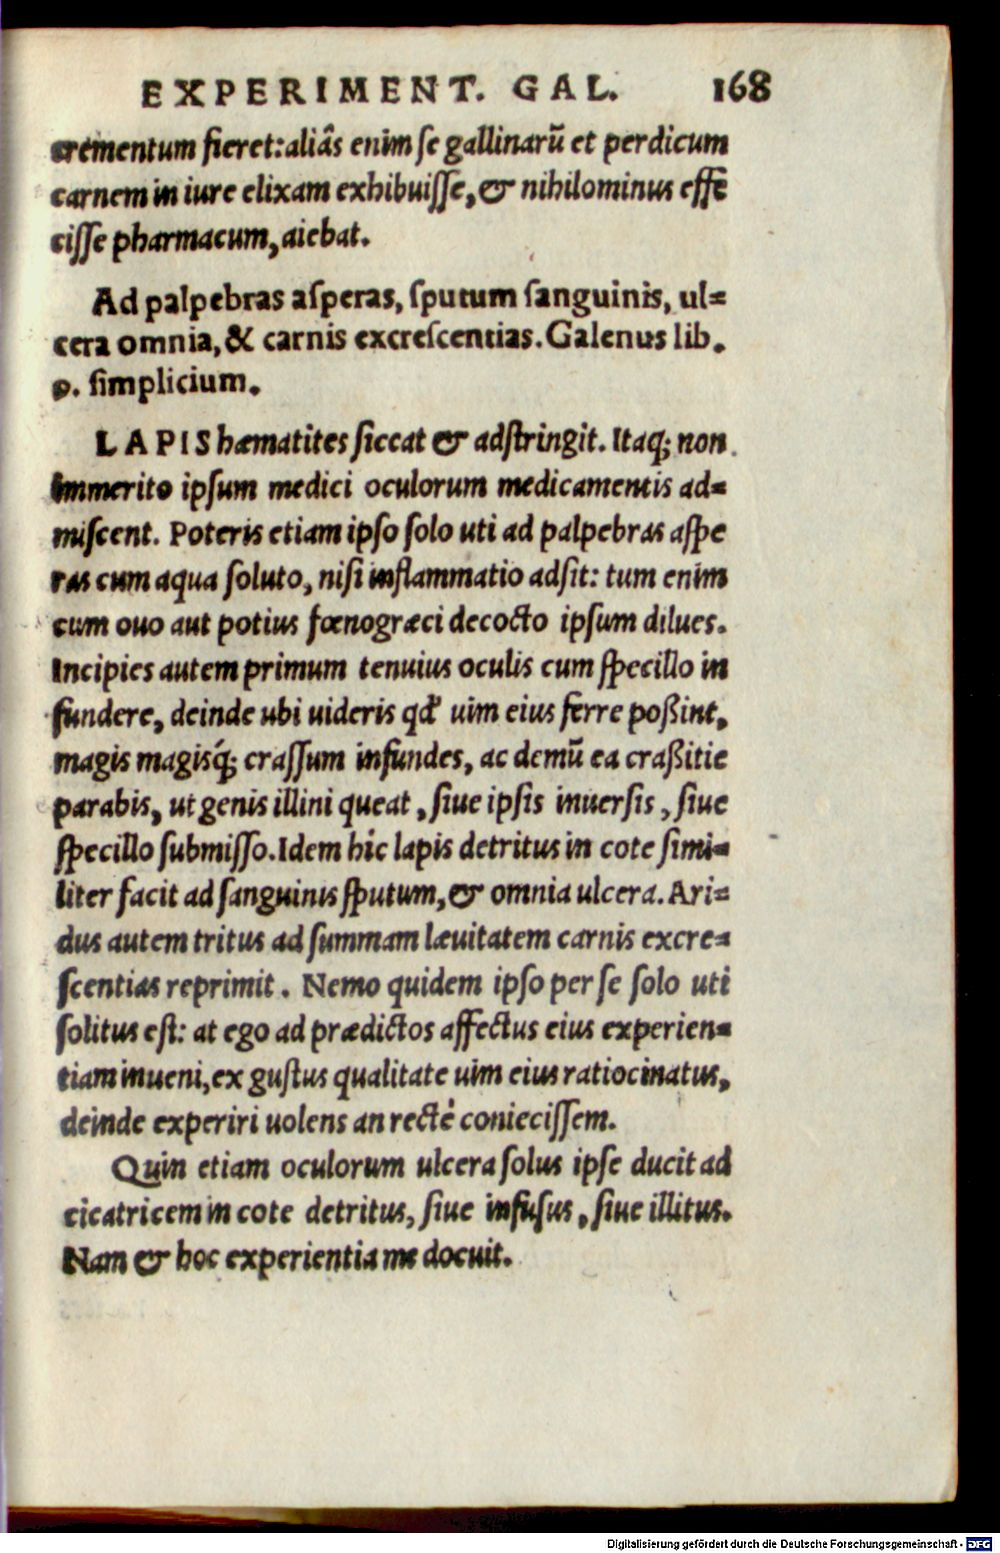 EXPERIMENT. GAL. 168
crementum fieret: aliâs enim ſe gallinarũ et perdicum
carnem in iure elixam exhibuiſſe, & nihilominus effe
ciſſe pharmacum, aiebat.
Ad palpebras aſperas, ſputum ſanguinis, ul=
cera omnia, & carnis excreſcentias. Galenus lib.
9. ſimplicium.
LAPIS hæmatites ſiccat & adſtringit. Itaq; non
immerito ipſum medici oculorum medicamentis ad=
miſcent. Poteris etiam ipſo ſolo uti ad palpebras aſpe
ras cum aqua ſoluto, niſi inflammatio adſit: tum enim
cum ouo aut potius fœnogræci decocto ipſum dilues.
Incipies autem primum tenuius oculis cum ſpecillo in
fundere, deinde ubi uideris qđ uim eius ferre poßint,
magis magisq́; craſſum infundes, ac demũ ea craßitie
parabis, ut genis illini queat, ſiue ipſis inuerſis, ſiue
ſpecillo ſubmiſſo. Idem hic lapis detritus in cote ſimi=
liter facit ad ſanguinis ſputum, & omnia ulcera. Ari=
dus autem tritus ad ſummam læuitatem carnis excre=
ſcentias reprimit. Nemo quidem ipſo per ſe ſolo uti
ſolitus eſt: at ego ad prædictos affectus eius experien=
tiam inueni, ex guſtus qualitate uim eius ratiocinatus,
deinde experiri uolens an rectèönieciſſem.
Quin etiam oculorum ulcera ſolus ipſe ducit ad
cicatricem in cote detritus, ſiue infuſus, ſiue illitus.
Nam & hoc experientia me docuit.
Digitalisierung gefördert durch die Deutsche Forschungsgemeinschaft - DFG